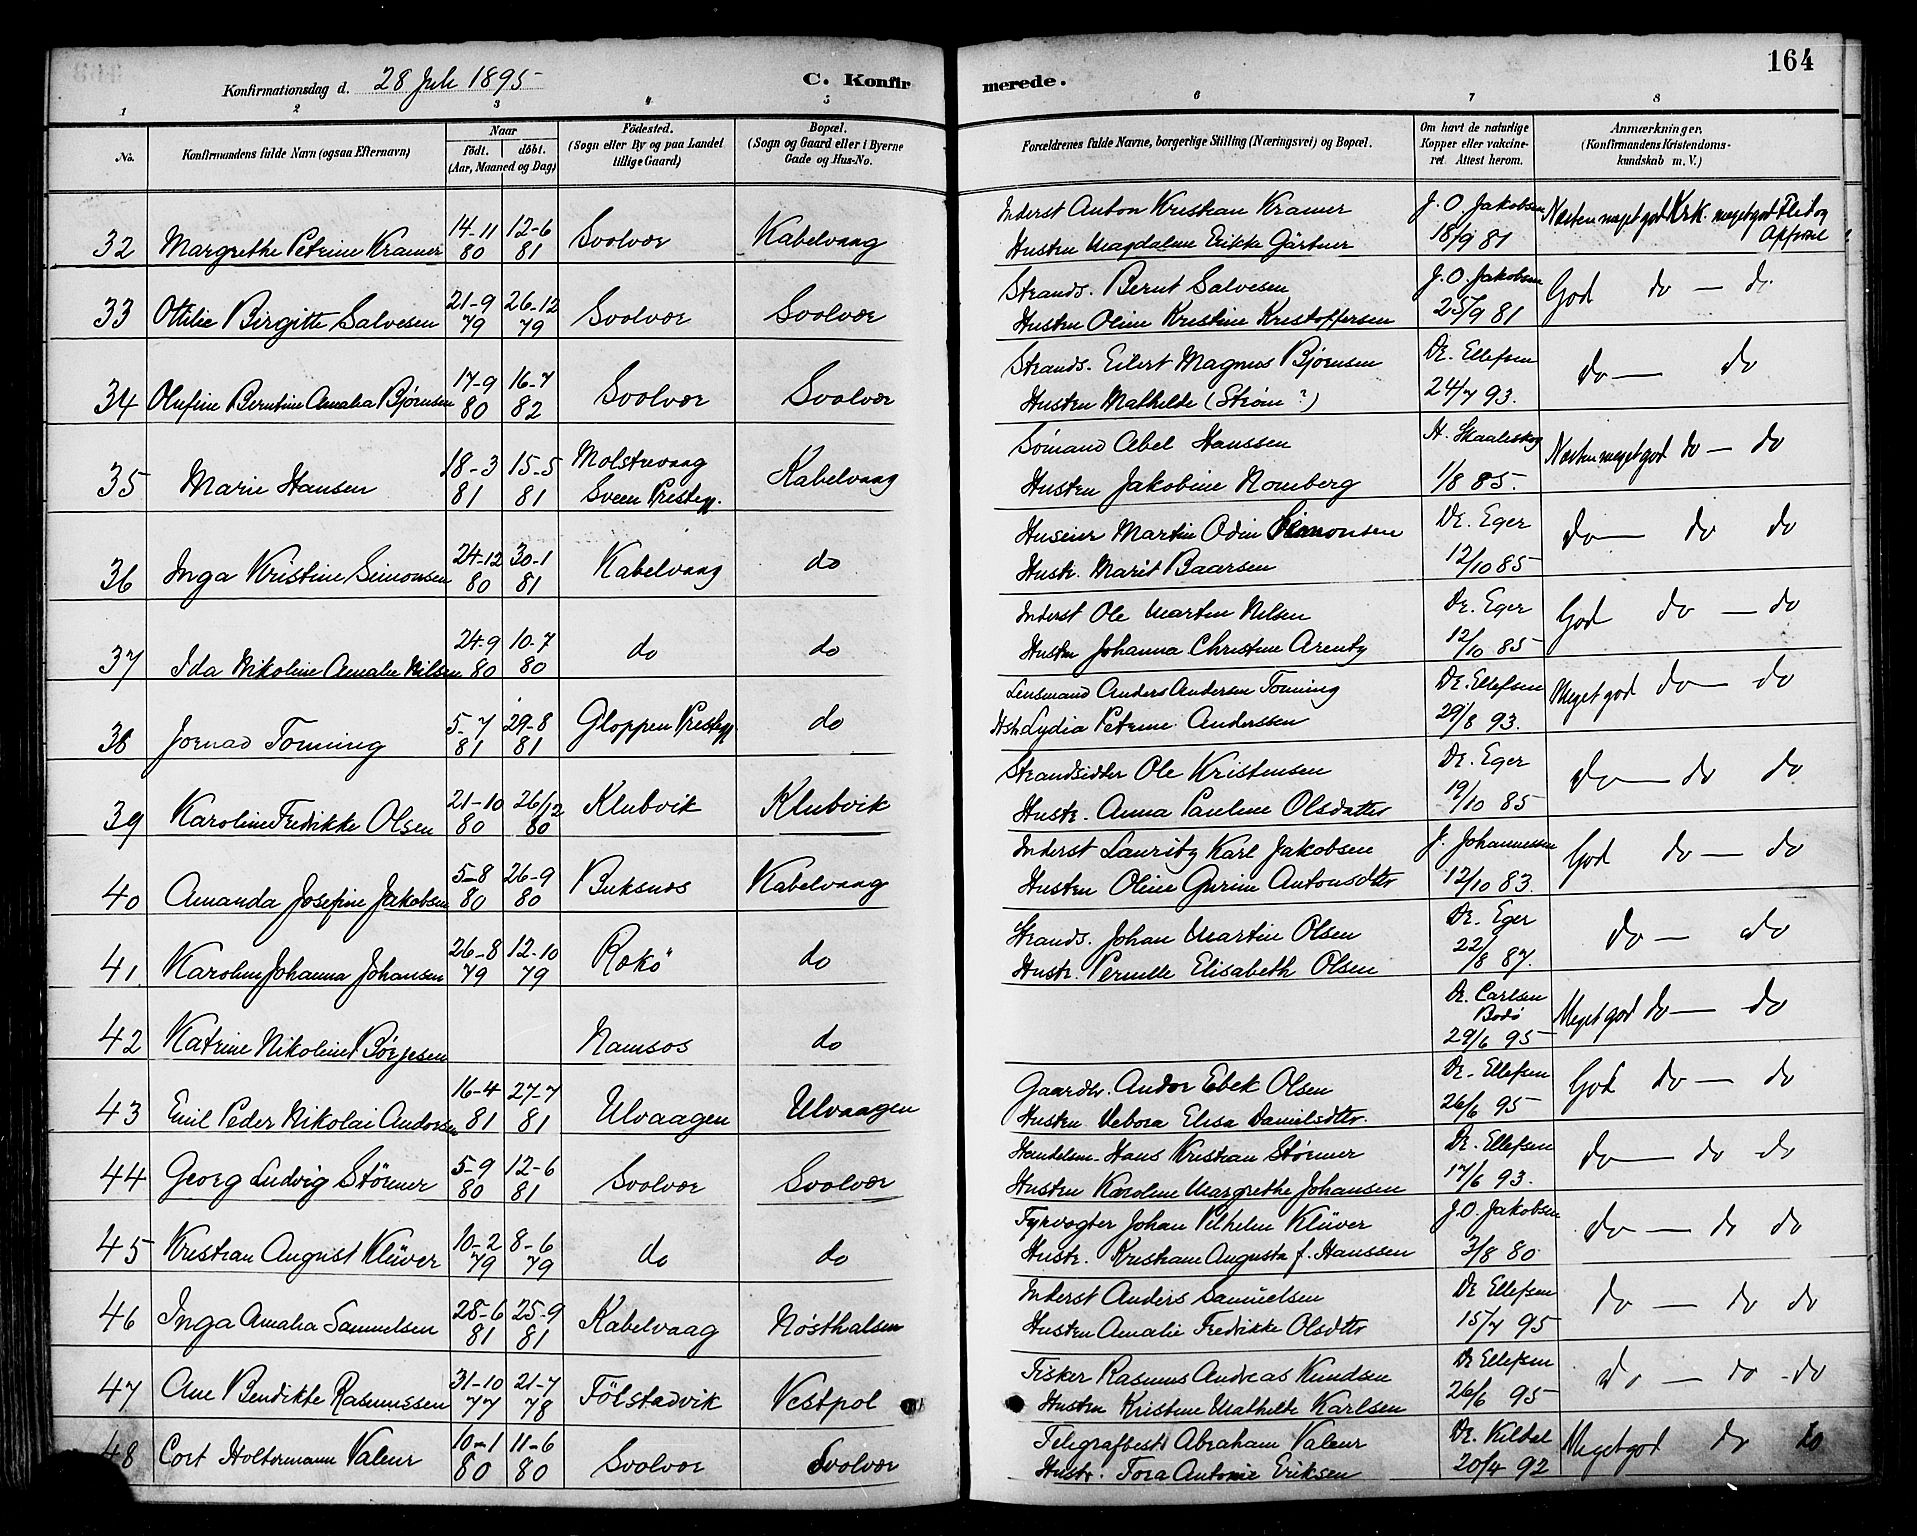 164
Konfirmationsdag d. 28 Juli 1895 C. Konfirmerede.
1 2 3 4 5 6 7 8
No. Konfirmandens fulde Navn (ogsaa Efternavn) Naar födt. döbt. (Aar, Maaned og Dag) Födested. (Sogn eller By og paa Landet tillige Gaard) Bopæl. (Sogn og Gaard eller i Byerne Gade og Hus-No. Forældrenes fulde Navne, borgerlige Stilling (Næringsvei) og Bopæl. Om havt de naturlige Kopper eller vakcineret. Attest herom. Anmærkninger. (Konfirmandens Kristendomskundskab m. V.)
32 Margrethe Petrine Kramer 14-11 80 12-6 81 Svolvær Kabelvaag Inderst Anton Kristian Kramer J. O. Jakobsen Næsten meget god Krk. meget god Flid og Opførsel
Hustru Magdalene Erikka Gärtner 18/9 81
33 Ottilie Birgitte Salvesen 21-9 79 26-12 79 Svolvær Svolvær Strands. Bernt Salvesen J. O. Jakobsen God do — do
Hustru Oline Kristine Kristoffersen 25/9 81
34 Olufine Berntine Amalia Bjørnsen 17-9 80 16-7 82 Svolvær Svolvær Strands. Eilert Magnus Bjørnsen Dr. Ellefsen do — do
Hustru Mathilde (Strøm ?) 24/7 93.
35 Marie Hansen 18-3 81 15-5 81 Molstrevaag Sveen Prestegj. Kabelvaag Sømand Abel Hanssen Næsten meget god do — do
Hustru Jakobine Romberg 1/8 85.
36 Inga Kristine Simonsen 24-12 80 30-1 81 Kabelvaag do Huseier Martin Odin Simonsen Dr. Eger do — do do
Hustr. Marit Baarsen 12/10 85
37 Ida Nikoline Amalie Nilsen 24-9 80 10-7 80 do do Inderst Ole Martin Nilsen Dr. Eger God do — do
Hustru Johanna Christine Arentz 12/10 85
38 Jornad Tonning 5-7 81 29-8 81 Gloppen Prestegj. do Lensmand Anders Andersen Tonning Dr. Ellefsen Meget god do — do
Hst. Lydia Petrine Anderssen 29/8 93.
39 Karoline Fredrikke Olsen 21-10 80 26/12 80 Klubvik Klubvik Strandsidder Ole Kristensen Dr. Eger do — do do
Hustr. Anna Pauline Olsdatter 19/10 85
40 Amanda Josefine Jakobsen 5-8 80 26-9 80 Buksnes Kabelvaag Inderst Lauritz Karl Jakobsen J. Johannessen God do — do
Hustru Oline Gurine Antonsdtr 12/10 83.
41. Karoline Johanna Johansen 26-8 79 12-10 79 do Strands. Johan Martin Olsen Dr. Eger do — do
Hustr. Pernille Elisabeth Olsen 22/8 87.
42 Katrine Nikoline Børgesen Namsos do Dr. Carlsen Bodø 29/6 95 Meget god do — do
43 Emil Peder Nikolai Andorsen 16-4 81 27-7 81 Ulvaagen Ulvaagen Gaardbr. Andor Ebek Olsen Dr. Ellefsen God do — do
Hustru Debora Elisa Danielsdtr. 26/6 95
44 Georg Ludvig Størmer 5-9 80 12-6 81 Svolvær Svolvær Handelsm. Hans Kristian Størmer Dr. Ellefsen do — do do
Hustru Karoline Margrethe Johansen 17/6 93.
45 Kristian August Klüver 10-2 79 8-6 79 do do Fyrvogter Johan Vilhelm Klüver J. O. Jakobsen do — do do
Hustr. Kristiane Augusta f. Hanssen 3/8 80
46 Inga Amalia Samuelsen 28-6 81 25-9 81 Kabelvaag Nøsthalsen Inderst Anders Samuelsen Dr Ellefsen do — do do
Hustru Amalie Fredrikke Olsdtr 15/7 95
47 Ane Bendikte Rasmussen 31-10 77 21-7 78 Følstadvik Vestpol Fisker Rasmus Andreas Knudsen Dr Ellefsen do — do - do
Hustru Kristine Mathilde Karlsen 26/6 95
48 Cort Holtermann Valeur 10-1 80 11-6 80 Svolvær Svolvær Telegrafbest. Abraham Valeur Dr. Kildal Meget god do do
Hustr. Tora Antonie Eriksen 20/4 92